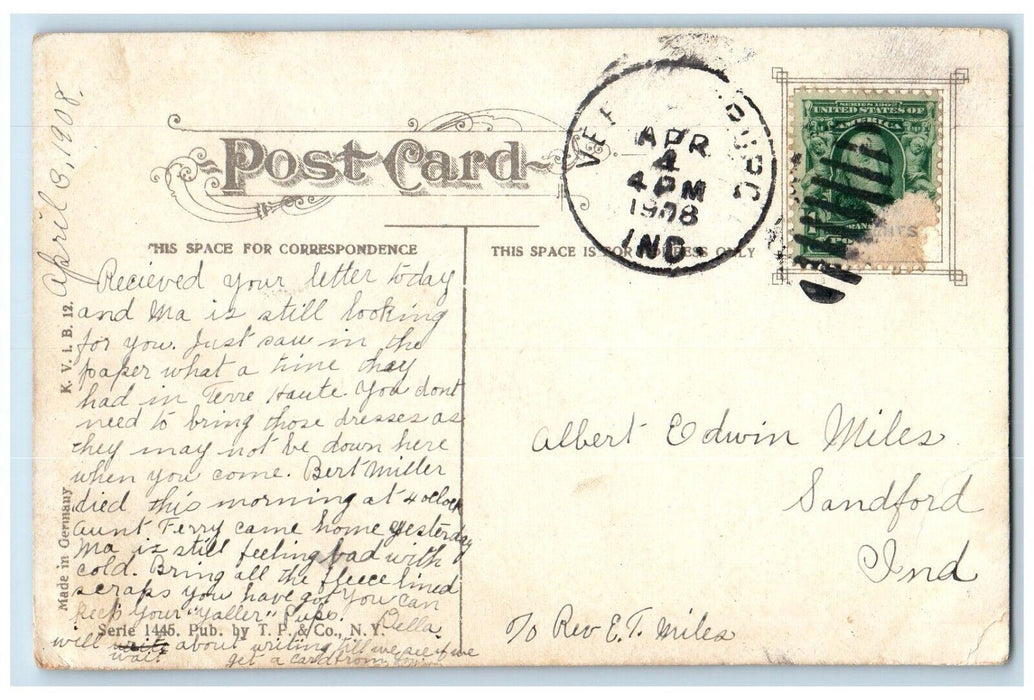 April 3, 1908.
Post Card
VEE DURG
APR
4
4 PM
1908
IND.
SERIES 1902
UNITED STATES OF
AMERICA
THIS SPACE FOR CORRESPONDENCE
THIS SPACE IS FOR ADDRESS ONLY
K. V. i. B. 12.
Made in Germany
Recieved your letter today
and Ma is still looking
for you. Just saw in the
paper what a time they
had in Terre Haute You dont
need to bring those dresses as
they may not be down here
when you come. Bert Miller
died this morning at 4 oclock
Aunt Ferry came home yesterday
Ma is still feeling bad with
cold. Bring all the fleece lined
scraps you have got you can
keep your "yaller" Pups.
Della
Serie 1445. Pub. by T. P. & Co., N. Y.
will wait about writing till we see if we
get a card from
Albert Edwin Miles
Sandford
Ind
c/o Rev E. T. Miles